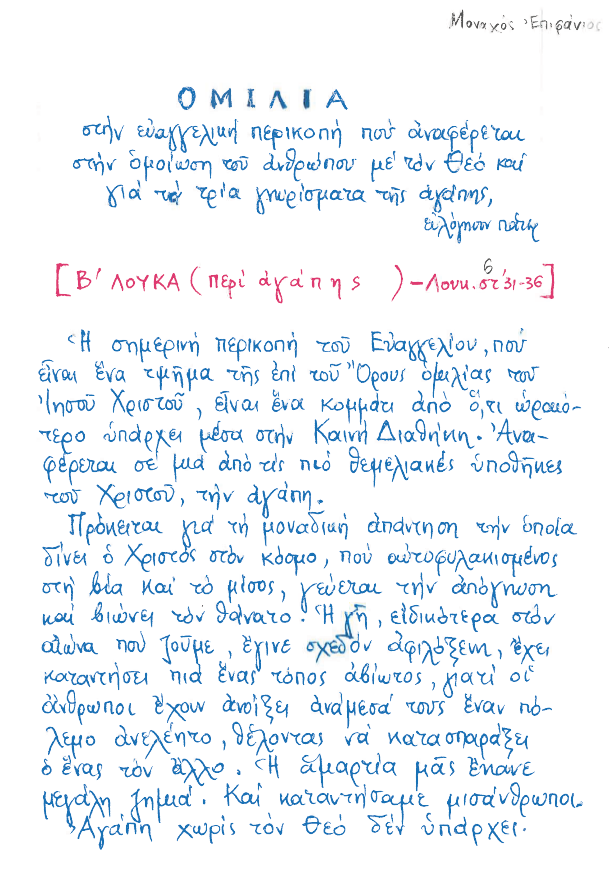 Μοναχός Ἐπιφάνιος
ΟΜΙΛΙΑ
στήν εὐαγγελική περικοπή πού ἀναφέρεται
στήν ὁμοίωση τοῦ ἀνθρώπου μέ τόν Θεό καί
γιά τά τρία γνωρίσματα τῆς ἀγάπης,
εὐλόγησον πάτερ
[Β΄ ΛΟΥΚΑ (περί ἀγάπης ) – Λουκ. στ΄ 6 31-36]
Ἡ σημερινή περικοπή τοῦ Εὐαγγελίου, πού
εἶναι ἕνα τμῆμα τῆς ἐπί τοῦ Ὄρους ὁμιλίας τοῦ
Ἰησοῦ Χριστοῦ, εἶναι ἕνα κομμάτι ἀπό ὅ,τι ὡραιό-
τερο ὑπάρχει μέσα στήν Καινή Διαθήκη. Ἀνα-
φέρεται σέ μιά ἀπό τίς πιό θεμελιακές ὑποθῆκες
τοῦ Χριστοῦ, τήν ἀγάπη.
Πρόκειται γιά τή μοναδική ἀπάντηση τήν ὁποία
δίνει ὁ Χριστός στόν κόσμο, πού αὐτοφυλακισμένος
στή βία καί τό μῖσος, γεύεται τήν ἀπόγνωση
καί βιώνει τόν θάνατο. Ἡ γῆ, εἰδικότερα στόν
αἰῶνα πού ζοῦμε, ἔγινε σχεδόν ἀφιλόξενη, ἔχει
καταντήσει πιά ἕνας τόπος ἀβίωτος, γιατί οἱ
ἄνθρωποι ἔχουν ἀνοίξει ἀνάμεσά τους ἕναν πό-
λεμο ἀνελέητο, θέλοντας νά κατασπαράξει
ὁ ἕνας τόν ἄλλο. Ἡ ἁμαρτία μᾶς ἔκανε
μεγάλη ζημιά. Καί καταντήσαμε μισάνθρωποι.
Ἀγάπη χωρίς τόν Θεό δέν ὑπάρχει.